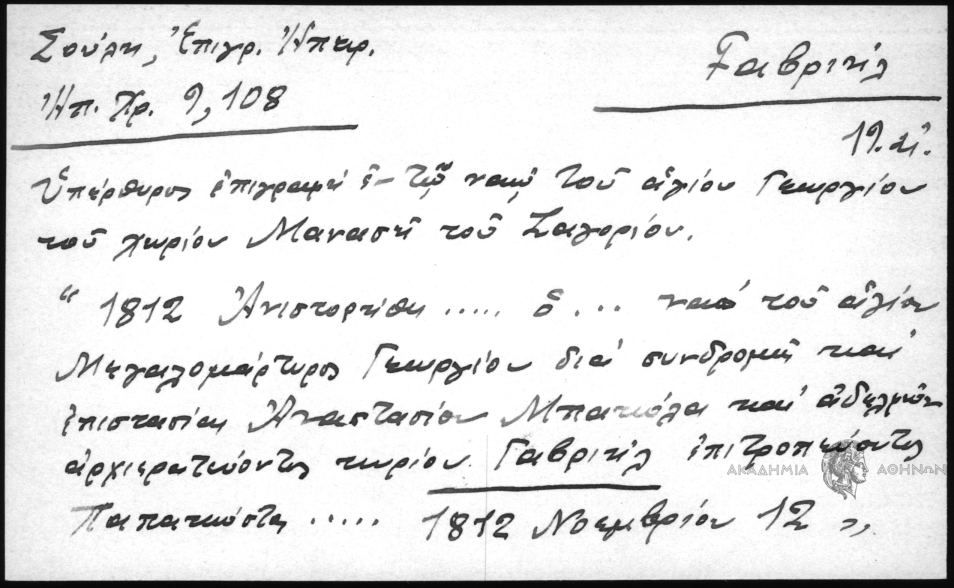 Σούλη, Ἐπιγρ. Ἠπειρ.
Ἠπ. Χρ. 9, 108
Γαβριήλ
19. αἰ.
Ὑπέρθυρος ἐπιγραφή ἐν τῷ ναῷ τοῦ ἁγίου Γεωργίου
τοῦ χωρίου Μανασῆ τοῦ Ζαγορίου.
"1812 Ἀνιστορήθη ..... ὁ ... ναός τοῦ ἁγίου
Μεγαλομάρτυρος Γεωργίου διά συνδρομῆς καί
ἐπιστασίας Ἀναστασίου Μπακόλα καί ἀδελφῶν
ἀρχιερατεύοντος κυρίου Γαβριήλ ἐπιτροπεύοντος
Παπακώστα ..... 1812 Νοεμβρίου 12"
ΑΚΑΔΗΜΙΑ ΑΘΗΝΩΝ